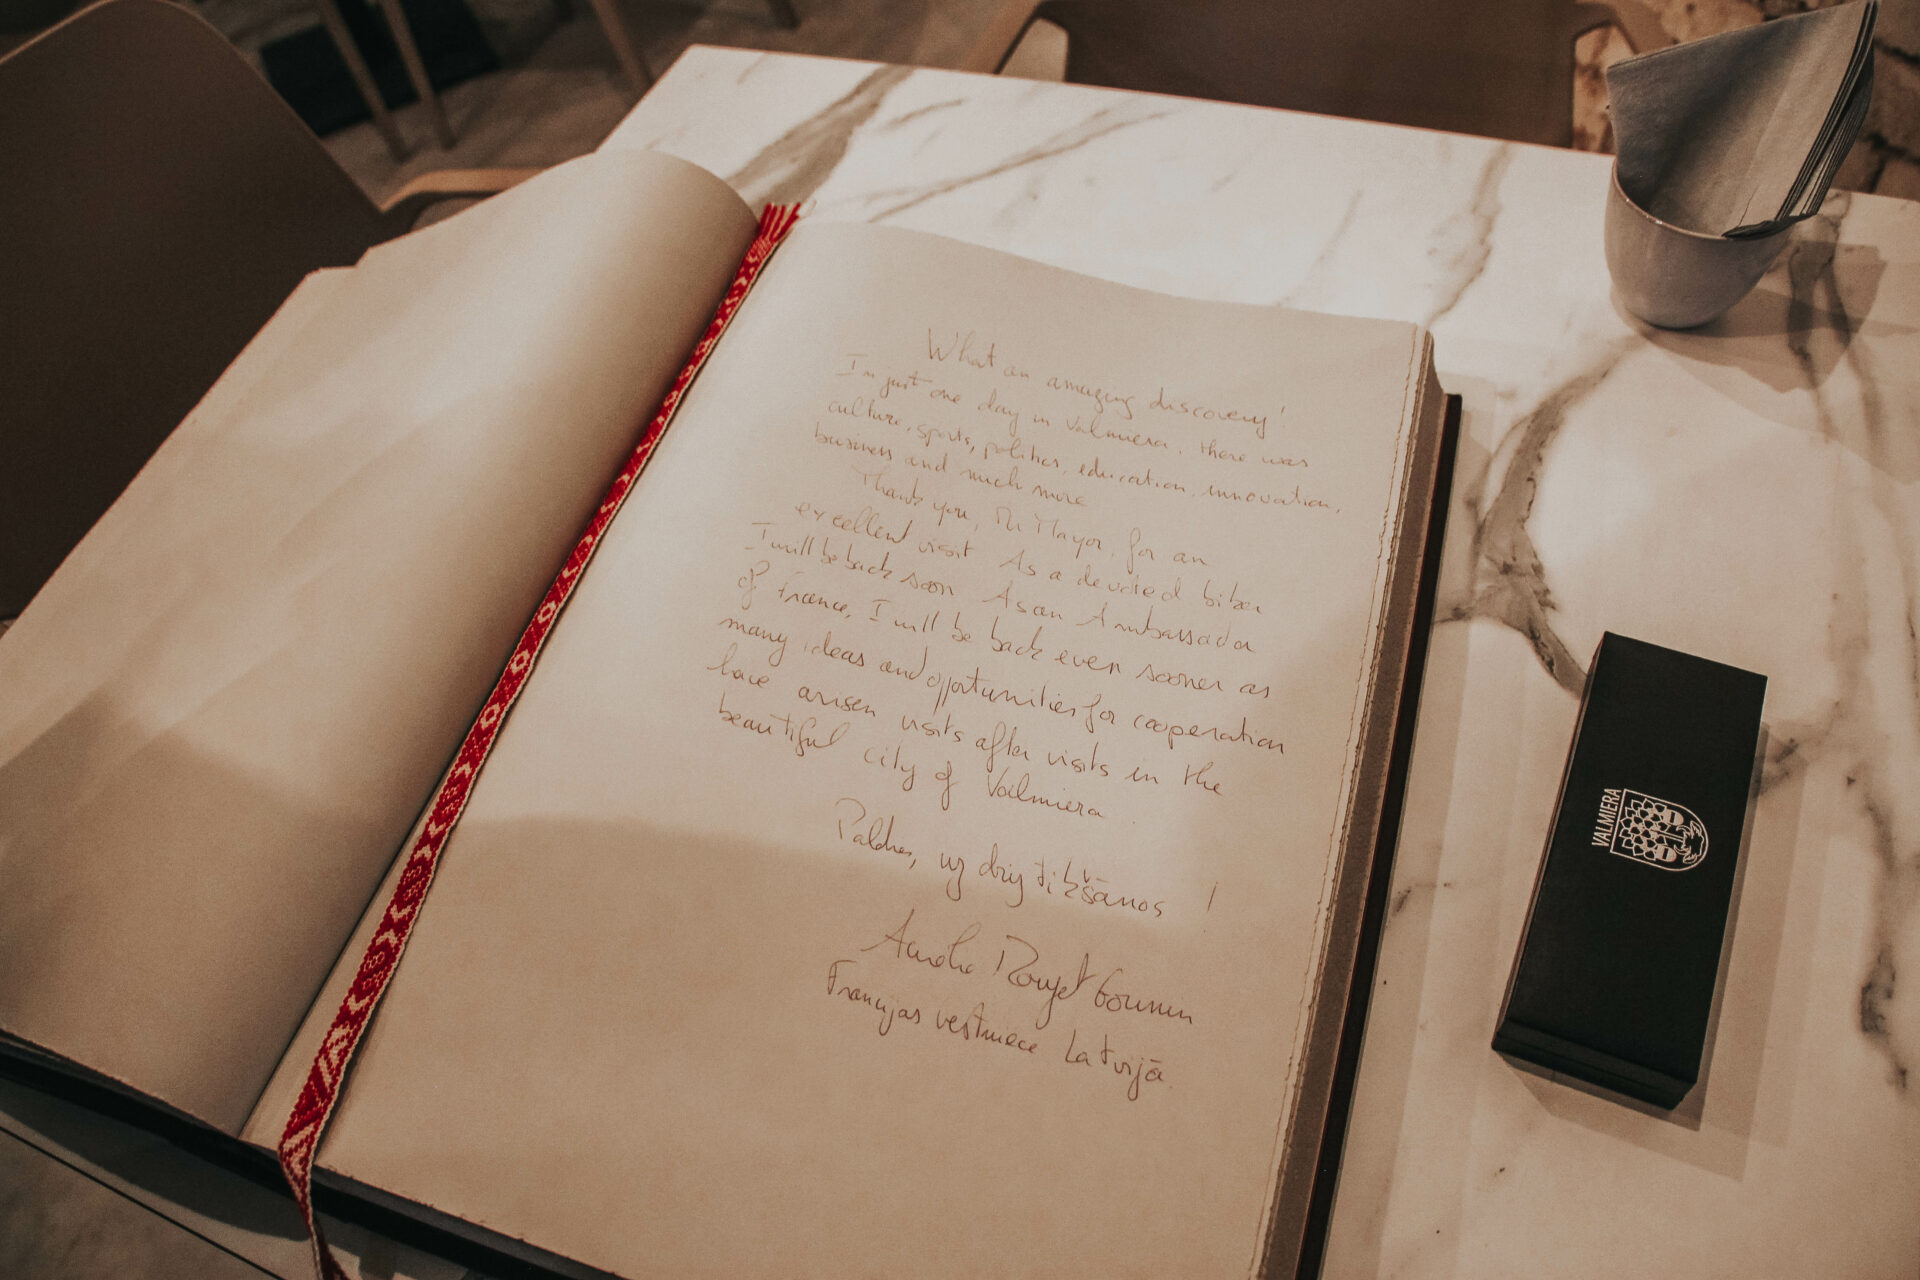 What an amazing discovery!
In just one day in Valmiera, there was
culture, sports, politics, education, innovation,
business and much more
Thank you, Mr Mayor, for an
excellent visit As a devoted biker
I will be back soon As an Ambassador
of France, I will be back even sooner as
many ideas and opportunities for cooperation
have arisen visits after visits in the
beautiful city of Valmiera
Paldies, uz drīz tikšanos !
Aurélie Royet Gounin
Francijas vēstniece Latvijā
VALMIERA